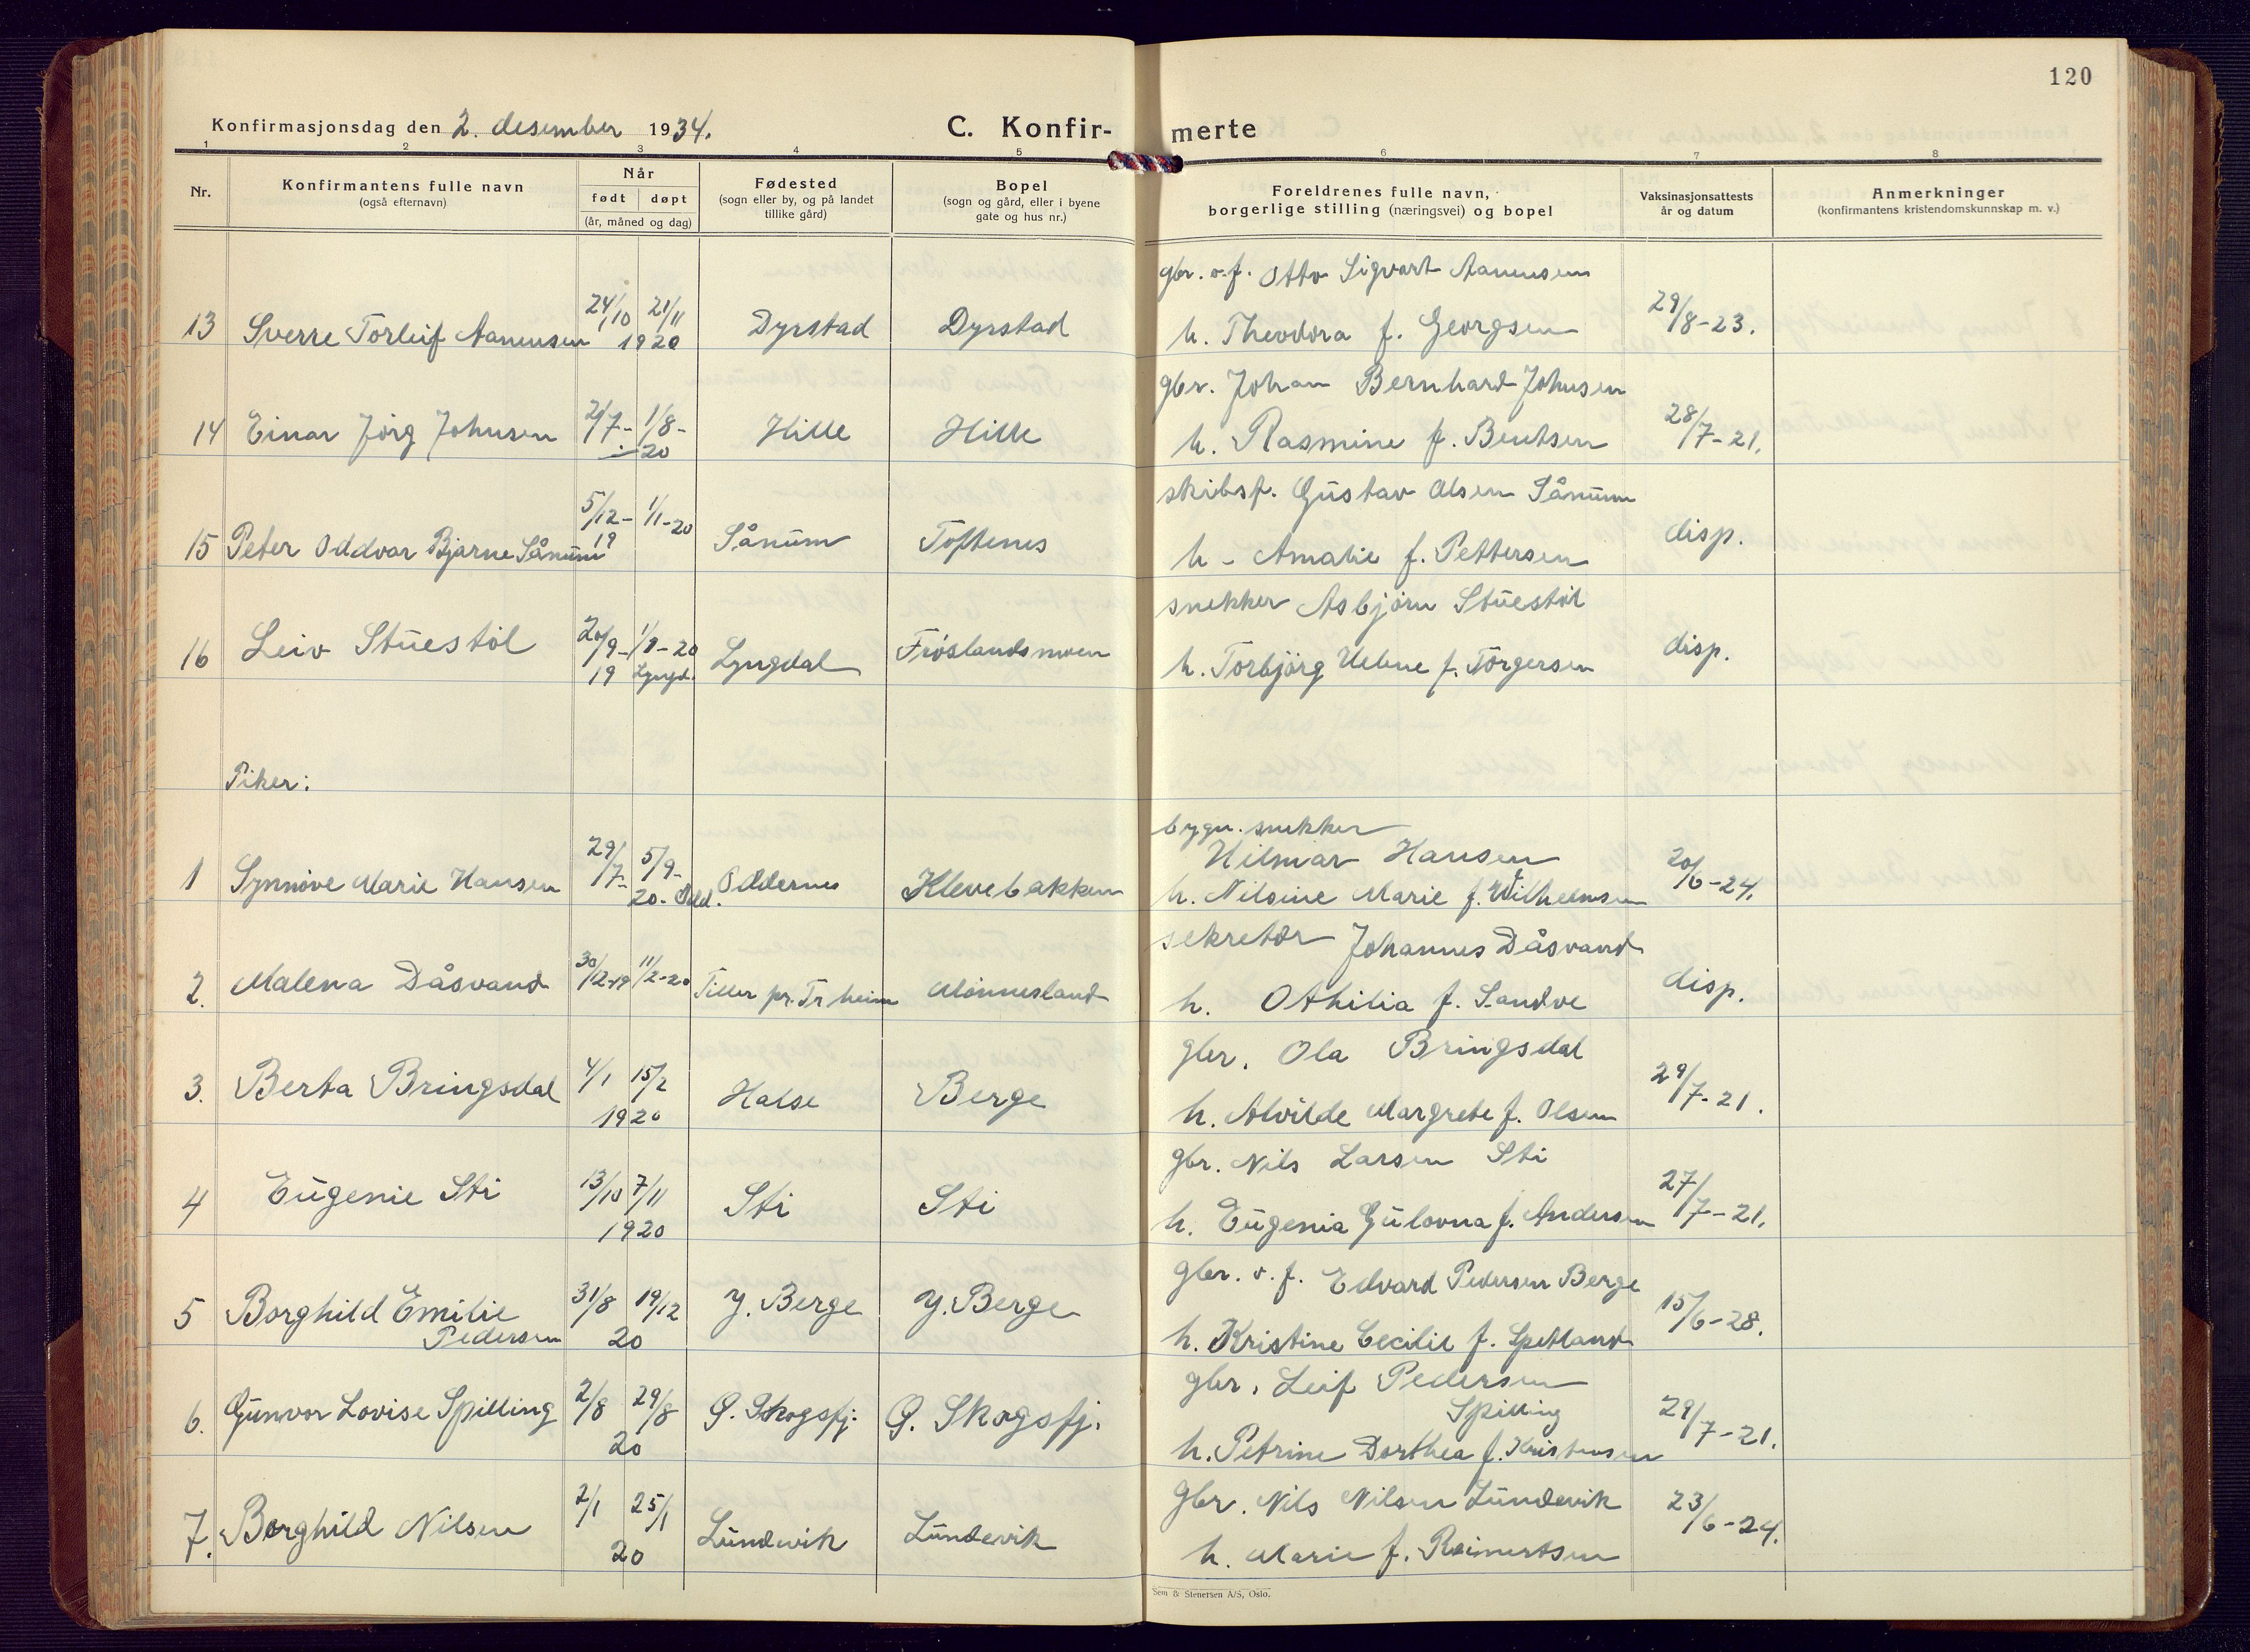 120
Konfirmasjonsdag den 2. desember 1934.
C. Konfirmerte
1 2 3 4 5 6 7 8
Nr.
Konfirmantens fulle navn
(også efternavn)
Når
født døpt
(år, måned og dag)
Fødested
(sogn eller by, og på landet
tillike gård)
Bopel
(sogn og gård, eller i byene
gate og hus nr.)
Foreldrenes fulle navn,
borgerlige stilling (næringsvei) og bopel
Vaksinasjonsattests
år og datum
Anmerkninger
(konfirmantens kristendomskunnskap m. v.)
gbr. o.f. Otto Sigvart Aanensen
13 Sverre Torleif Aanensen 24/10 21/11 1920 Dyrstad Dyrstad h. Theodora f. Georgsen 29/8-23.
gbr. Johan Bernhard Johnsen
14 Einar Jörg Johnsen 2/7- 1/8- 20 Hille Hille h. Rasmine f. Bentsen 28/7-21.
skibsf. Gustav Olsen Sånum
15 Peter Oddvar Bjarne Sånum 5/12-19 1/1-20 Sånum Toftenes h - Amalie f. Pettersen disp.
snekker Asbjörn Stuestöl
16 Leiv Stuestöl 20/9-19 1/1-20 Lyngd. Lyngdal Fröslandsmoen h. Torbjörg Helene f. Törgersen disp.
Piker:
bygn. snekker
Hilmar Hansen
1 Synnöve Marie Hansen 29/7- 5/9- 20. Odd. Oddernes Klevebakken h. Nilsine Marie f. Wilhelmsen 20/6-24.
sekretær Johannes Dåsvand
2. Malena Dåsvand 30/12-19 11/2-20 Tiller pr. Tr.heim Mönnesland h. Othilia f. Sandve disp.
gbr. Ola Bringsdal
3. Berta Bringsdal 4/1 15/2 1920 Halse Berge h. Alvilde Margrete f. Olsen 29/7-21.
gbr. Nils Larsen Sti
4 Eugenie Sti 13/10 7/11 1920 Sti Sti h. Eugenia Gulovna f. Andersen 27/7-21.
gbr. o. f. Edvard Pedersen Berge
5 Borghild Emilie Pedersen 31/8 19/12 20 Y. Berge Y. Berge h. Kristine Cecilie f. Spetland 15/6-28.
gbr. Leif Pedersen
Spilling
6. Gunvor Lovise Spilling 2/8 29/8 20 Ö. Skogsfj. Ö. Skogsfj. h. Petrine Dorthea f. Kristensen 29/7-21.
gbr. Nils Nilsen Lundevik
7. Borghild Nilsen 2/1 25/1 20 Lundevik Lundevik h. Marie f. Reinertsen 23/6-24.
Sem & Stenersen A/S, Oslo.